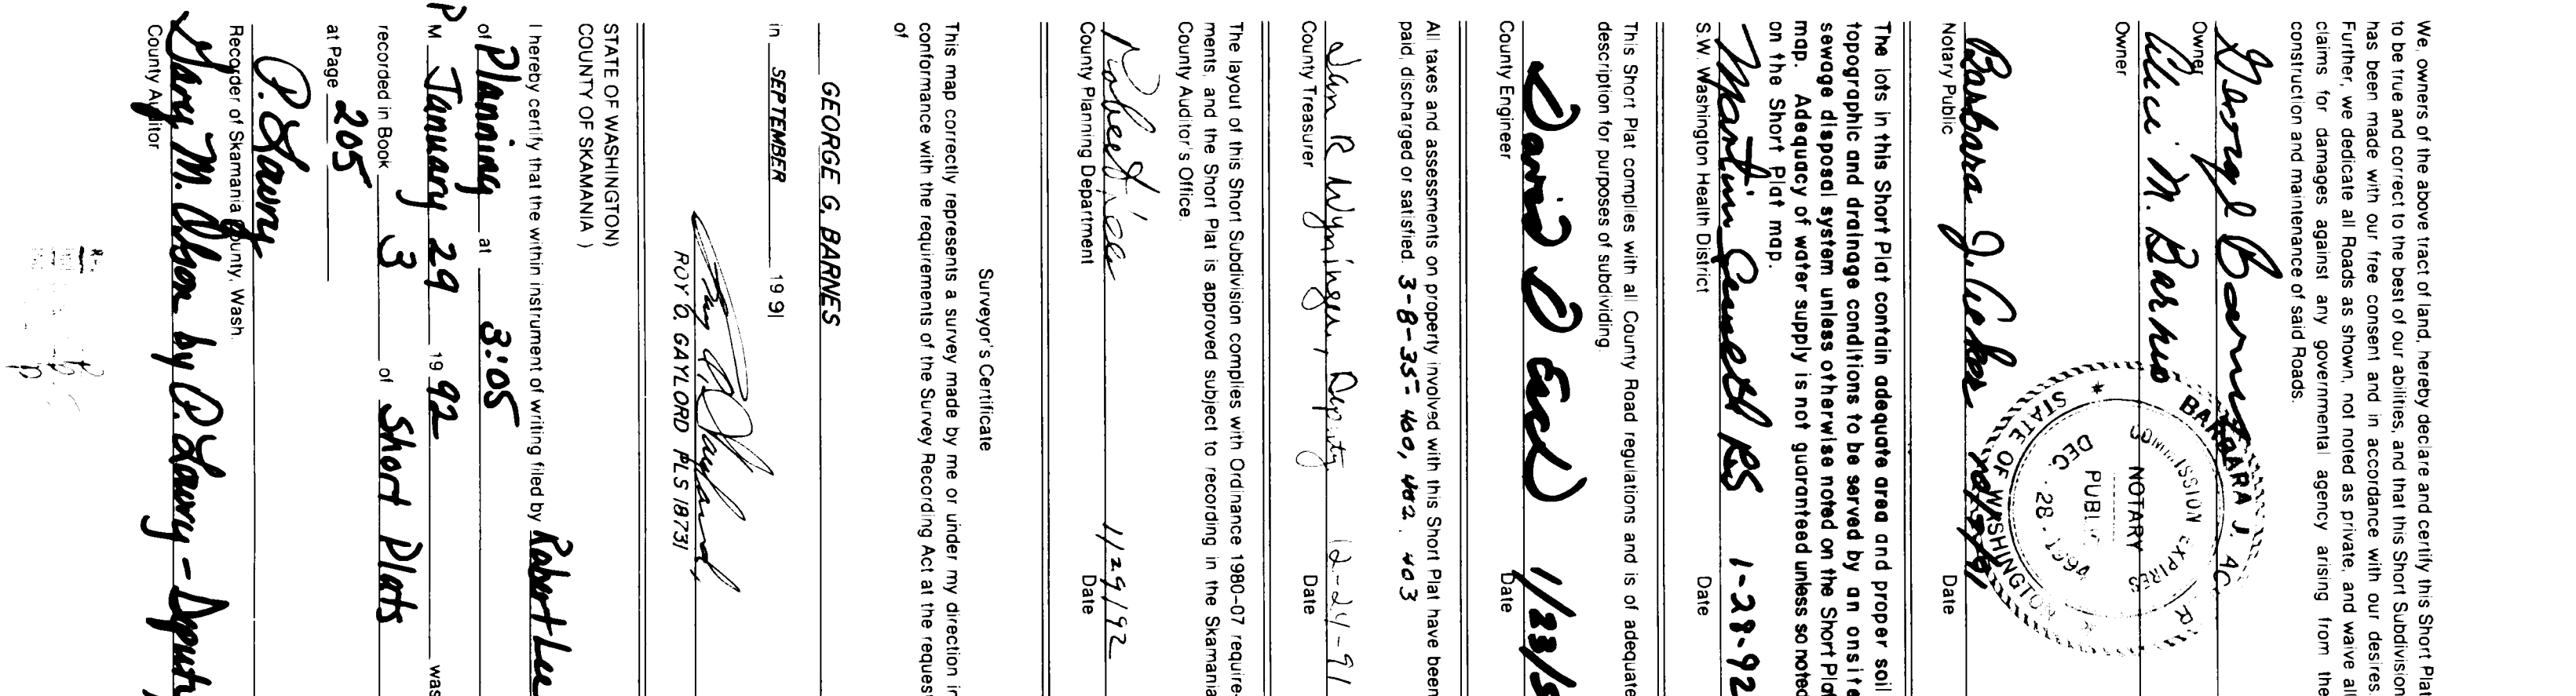 We, owners of the above tract of land, hereby declare and certify this Short Plat
to be true and correct to the best of our abilities, and that this Short Subdivision
has been made with our free consent and in accordance with our desires.
Further, we dedicate all Roads as shown, not noted as private, and waive all
claims for damages against any governmental agency arising from the
construction and maintenance of said Roads.
George Barnes
Owner
M. Barnes
Owner
BARBARA J.
COMMISSION EXPIRES
NOTARY
PUBLIC
DEC. 28, 1994
STATE OF WASHINGTON
Barbara J.
Notary Public Date
The lots in this Short Plat contain adequate area and proper soil
topographic and drainage conditions to be served by an onsite
sewage disposal system unless otherwise noted on the Short Plat
map. Adequacy of water supply is not guaranteed unless so noted
on the Short Plat map.
Martin RS 1-29-92
S.W. Washington Health District Date
This Short Plat complies with all County Road regulations and is of adequate
description for purposes of subdividing.
David D 1/23/9
County Engineer Date
All taxes and assessments on property involved with this Short Plat have been
paid, discharged or satisfied. 3-8-35- 400, 402, 403
Jan R Wyninger, Deputy 12-24-91
County Treasurer Date
The layout of this Short Subdivision complies with Ordinance 1980-07 require-
ments, and the Short Plat is approved subject to recording in the Skamania
County Auditor's Office.
Robert Lee 1/29/92
County Planning Department Date
Surveyor's Certificate
This map correctly represents a survey made by me or under my direction in
conformance with the requirements of the Survey Recording Act at the request
of
GEORGE G. BARNES
in SEPTEMBER 1991
Roy D. Gaylord
ROY D. GAYLORD PLS 18731
STATE OF WASHINGTON)
COUNTY OF SKAMANIA )
I hereby certify that the within instrument of writing filed by Robert Lee
of Planning at 3:05
PM January 29 1992 was
recorded in Book 3 of Short Plats
at Page 205
P. Lowry
Recorder of Skamania County, Wash.
Gary M. Olson by P. Lowry - Deputy
County Auditor